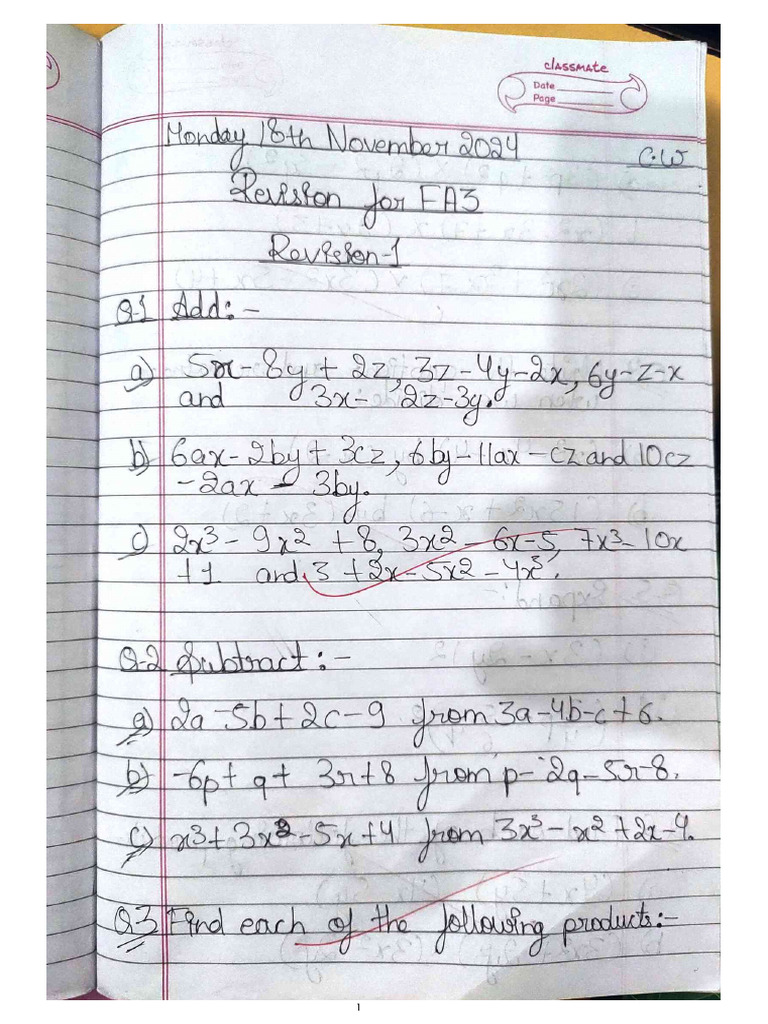 classmate
Date
Page
Monday 18th November 2024
C.W
Revision for FA3
Revision-1
Q-1 Add:-
a) 5x-8y+2z, 3z-4y-2x, 6y-z-x
and 3x- 2z-3y.
b) 6ax-2by+3cz, 6by-11ax-cz and 10cz
-2ax-3by.
c) 2x³-9x²+8, 3x²-6x-5, 7x³-10x
+1 and 3+2x-5x²-4x³.
Q-2 Subtract:-
a) 2a-5b+2c-9 from 3a-4b-c+6.
b) -6p+q+3r+8 from p-2q-5r-8.
c) x³+3x²-5x+4 from 3x³-x²+2x-4.
Q3 Find each of the following products:-
1